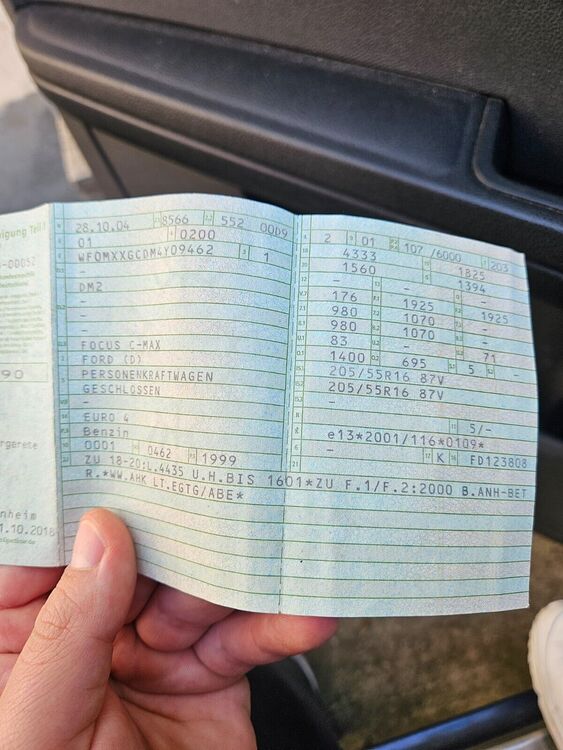 igung Teil I
-00052
90
rgerete
nheim
1.10.2018
28.10.04 8566 552 00D9
01 0200
WF0MXXGCDM4Y09462 1
-
DM2
-
-
FOCUS C-MAX
FORD (D)
PERSONENKRAFTWAGEN
GESCHLOSSEN
-
EURO 4
Benzin
0001 0462 1999
2 01 107 /6000 203
4333 1825
1560 1394
- - -
176 1925 1925
980 1070 -
980 1070 -
83 - 71
1400 695 5 -
205/55R16 87V
205/55R16 87V
-
5/-
e13*2001/116*0109*
- K FD123808
ZU 18-20:L.4435 U.H.BIS 1601*ZU F.1/F.2:2000 B.ANH-BET
R.*WW.AHK LT.EGTG/ABE*